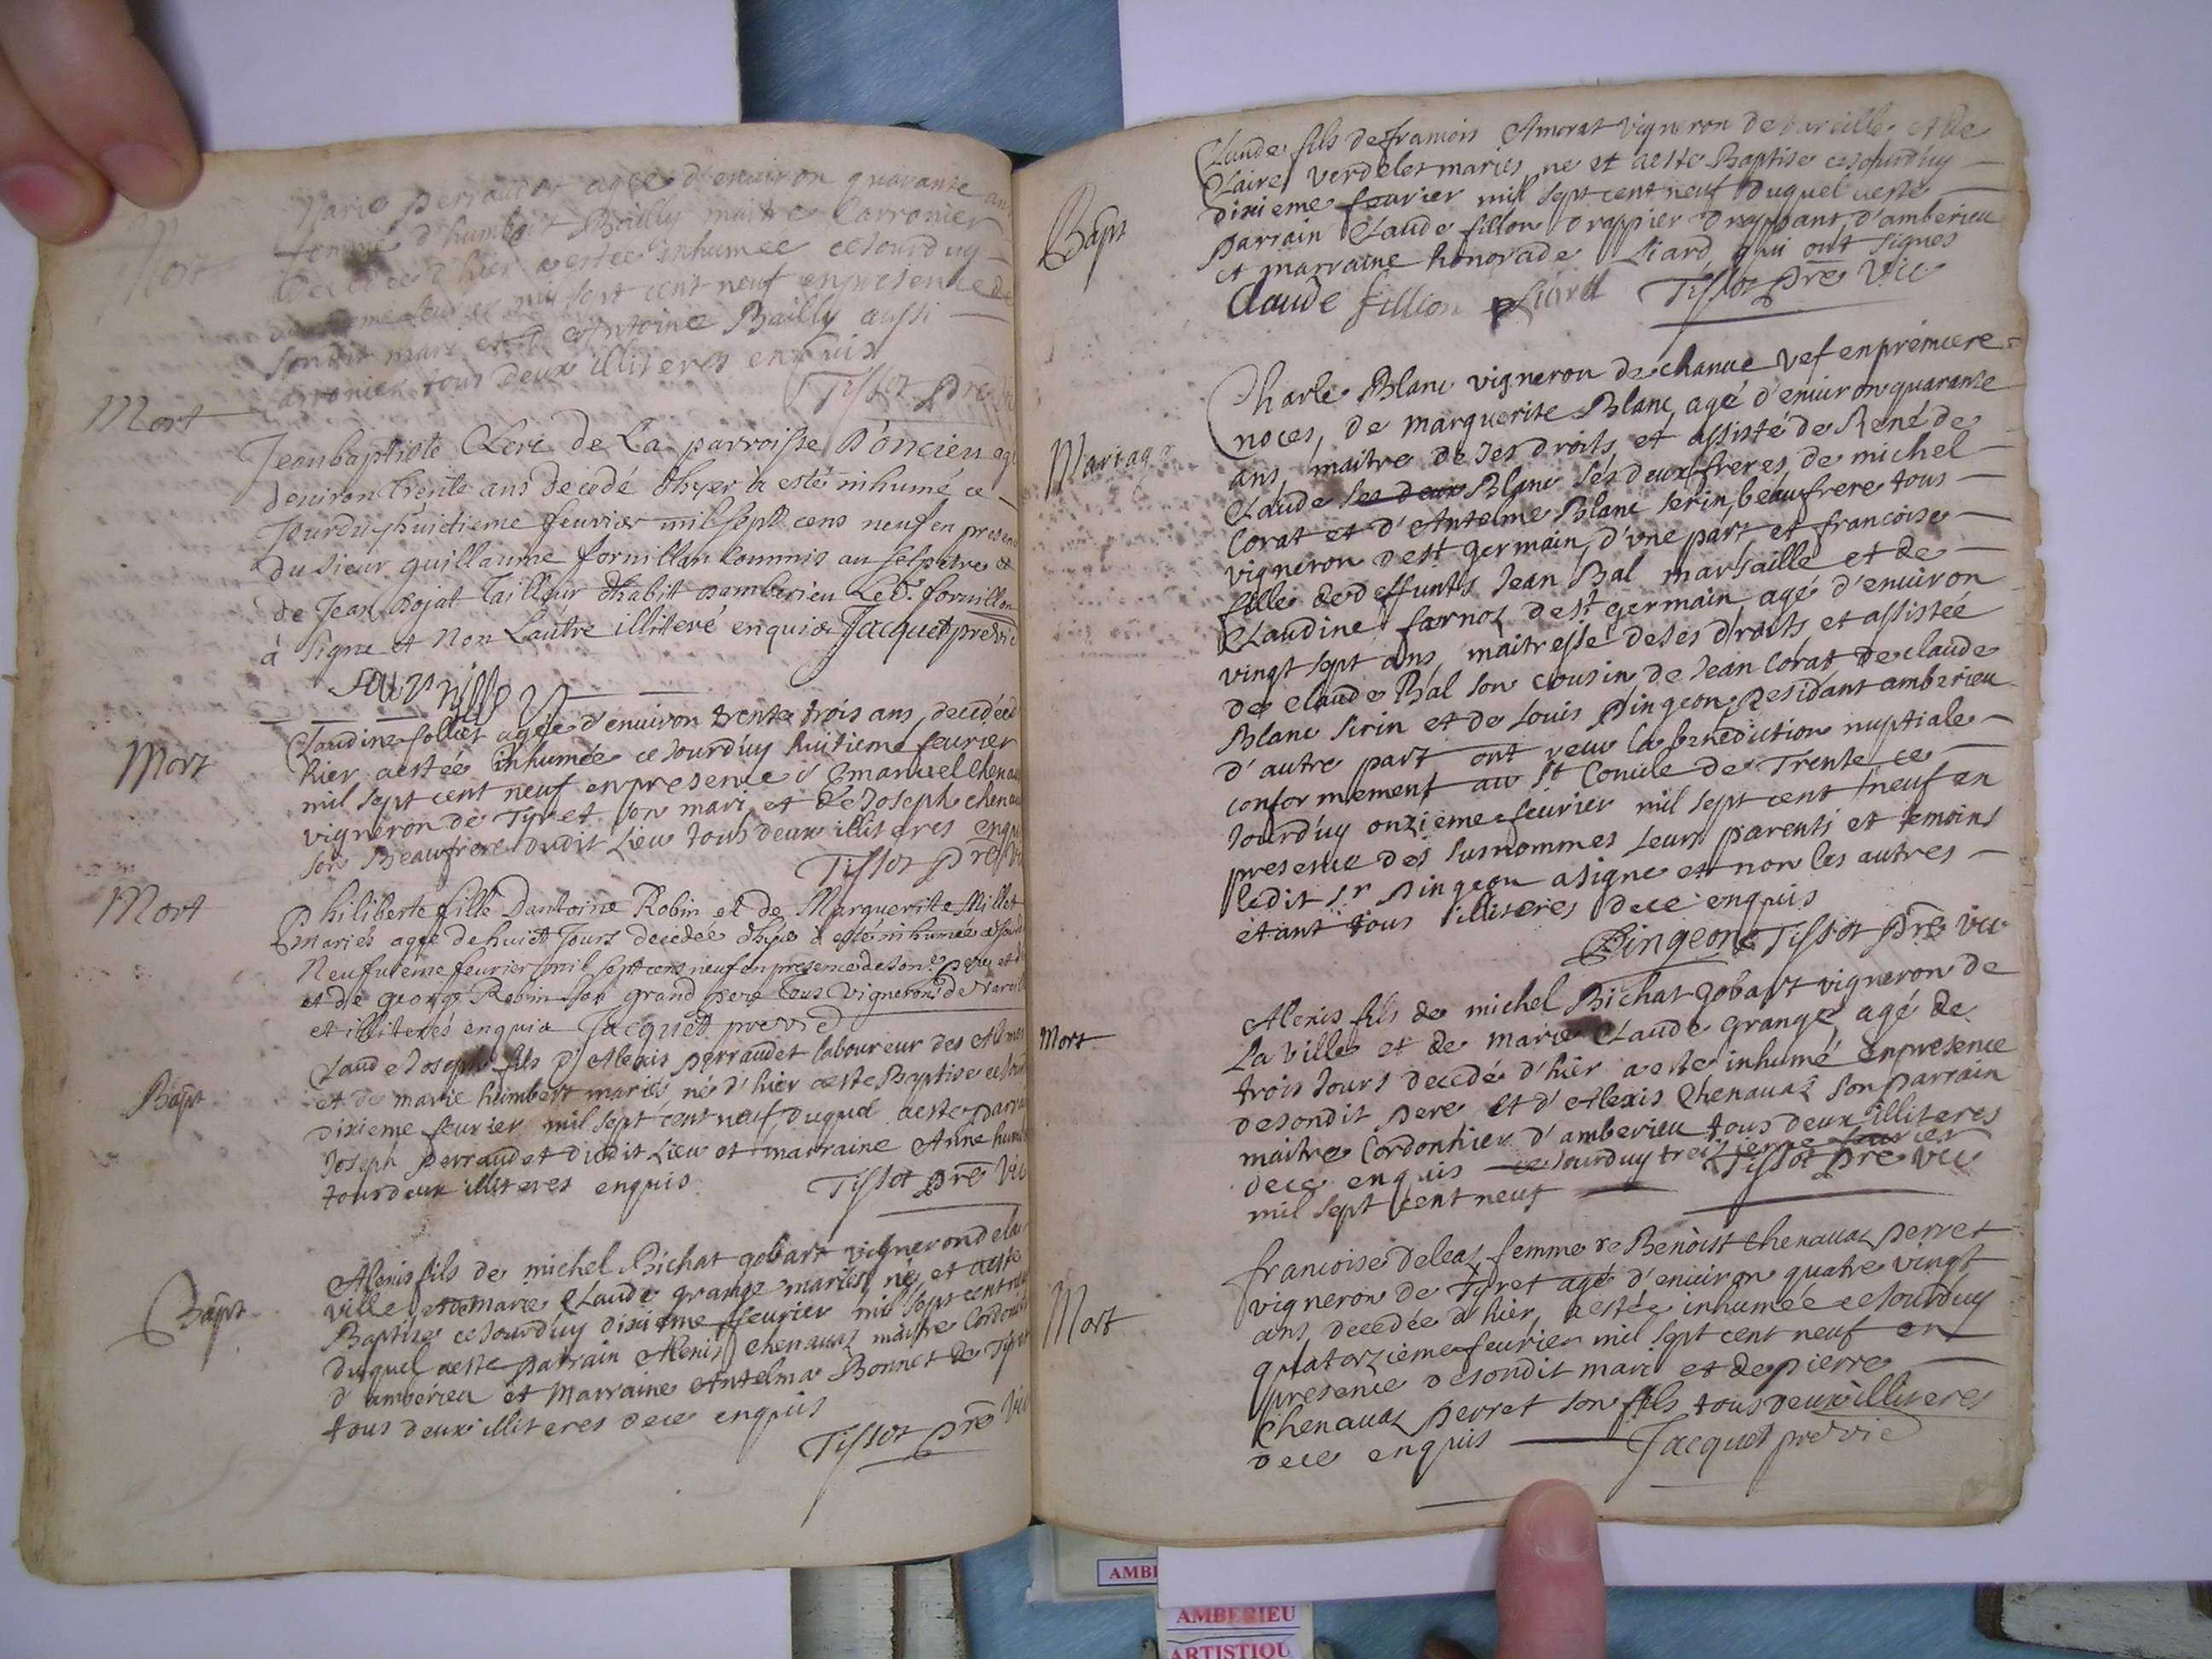 Mort
Marie perraudet agée d'enuiron quarante ans
femme d'humbert Bailly maitre Carronier
decedée d'hier aestée inhumée ceJourduy
feurier mil sept cent neuf enpresence de
sondit mari et d'Antoine Bailly aussi
carronier tous deux illiteres enquis
Tissot pre vic
Mort
Jeanbaptiste Clere de La parroisse D'oncieu agé
denuiron trente ans decedé d'hyer à esté inhumé ce
Jourduy huictieme feurier mil sept cens neuf en presence
du sieur guillaume fornillon Commis au salpetre et
de Jean Bojat Tailleur dhabit damberieu Le Sr. fornillon
à Signe et Non Lautre illiteré enquis Jacquet pre vic
fournillon
Mort
Claudine follier agée d'enuiron trente trois ans, decedée d
hier aestée inhumée ceJourd'uy huitieme feurier
mil sept cent neuf enpresence d'Emanuel chenauaz
vigneron de Tyret son mari et de Joseph chenauaz
son Beaufrere dudit Lieu tous deux illiteres enquis
Tissot pre vic
Mort
Philiberte fille Dantoine Robin et de Marguerite Millet
mariés agée dehuict Jours decedée dhyer à esté inhumée ceJourduy
Neufuieme feurier mil sept cens neuf en presence de son d. pere
et de george Robin son grand pere tous vignerons de vareille
et illiterés enquis Jacquet pre vic
Bapt
Claude Joseph fils d'Alexis perraudet laboureur des Alimes
et de marie humbert mariés né d'hier aeste Baptise ceJourd'uy
dixieme feurier mil sept cent neuf, duquel aeste parrain
Joseph perraudet dudit Lieu et marraine Anne humbert
tousdeux illiteres enquis
Tissot pre vic
Bapt
Alexis fils de michel Bichat gobart vigneron dela
ville et de marie Claude grange mariés, né et aeste
Baptise ceJourd'uy dixieme feurier mil sept cent neuf
duquel aeste parrain Alexis chenauaz maitre Cordonnier
d'amberieu et Marraine Antelma Bonnet de Tyret
tous deux illiteres dece enquis
Tissot pre vic
Bapt
Claude fils de francois Amorat vigneron de vareille et de
Claire verdelet mariés né et aeste Baptise ceJourd'uy
dixieme feurier mil sept cent neuf duquel aeste
parrain Claude fillon drappier drappant d'amberieu
et marraine honorade Liard qui ont signes
Claude fillion Liard Tissot pre vic
Mariage
Charle Blanc vigneron de chanue vef enpremiere
noces, de marguerite Blanc, agé d'enuiron quarante
ans, maitre de ses droits, et assisté de René de
Claude ses deux Blanc ses deux freres, de michel
Corat et d'Antelme Blanc serin, beaufrere tous
vigneron de st germain, d'vne part et francoise
fille de deffunts Jean Bal marsaille et de
Claudine farnoz de st germain agé d'enuiron
vingt sept ans, maitresse de ses droits, et assistée
de claude Bal son cousin de Jean Corat de claude
Blanc serin et de Louis Pingeon, Residant amberieu
d'autre part ont receu la benediction nuptiale
conformement au st Concile de Trente ce
Jourd'uy onzieme feurier mil sept cent neuf en
presence des susnommes leurs parents et temoins
ledit Sr Pingeon asigne et non les autres
etant tous illiteres dece enquis
Pingeon Tissot pre vic
Mort
Alexis fils de michel Bichat gobart vigneron de
La ville et de marie Claude grange, agé de
trois Jours decedé d'hier aeste inhumé enpresence
desondit pere et d'Alexis Chenauaz son parrain
maitre Cordonnier d'amberieu tous deux illiteres
dece enquis ceJourduy treizieme feurier
mil sept cent neuf Tissot pre vic
Mort
francoise deleaz femme de Benoist chenauaz perret
vigneron de Tyret agé d'enuiron quatre vingt
ans, decedée d'hier, aestée inhumée ceJourd'uy
quatorzieme feurier mil sept cent neuf en
presence desondit mari et de pierre
chenauaz perret son fils tous deux illiteres
dece enquis Jacquet pre vic
AMBE
AMBERIEU
ARTISTIQU